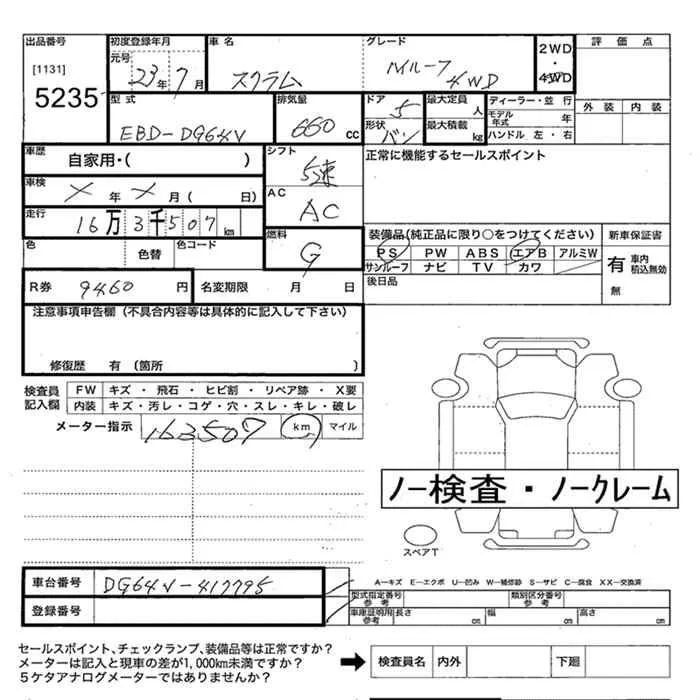 出品番号 初度登録年月 車名 グレード 2WD・4WD 評価点
[1131] 元号 23年 7月 スクラム ハイルーフ 4WD
5235 型式 排気量 ドア 5 最大定員 人 ディーラー・並行 外装 内装
EBD-DG64V 660cc 形状 バン 最大積載 kg モデル年式 年
ハンドル 左・右
車歴 自家用・( ) シフト 5速 正常に機能するセールスポイント
車検 年 月( 日) AC AC
走行 16万3千507km 燃料 G 装備品(純正品に限り○をつけてください) 新車保証書
色 色替 色コード PS PW ABS エアB アルミW 有 車内積込無効
サンルーフ ナビ TV カワ
R券 9460円 名変期限 月 日 後日品 無
注意事項申告欄(不具合内容等は具体的に記入して下さい)
修復歴 有(箇所 )
検査員記入欄 FW キズ・飛石・ヒビ割・リペア跡・X要
内装 キズ・汚レ・コゲ・穴・スレ・キレ・破レ
メーター指示 163507 km マイル
ノー検査・ノークレーム
スペアT
車台番号 DG64V-417795
A−キズ E−エクボ U−凹み W−補修跡 S−サビ C−腐食 XX−交換済
登録番号 型式指定番号 参考 類別区分番号 参考
車庫証明用参考 長さ cm 幅 cm 高さ cm
セールスポイント、チェックランプ、装備品等は正常ですか?
メーターは記入と現車の差が1,000km未満ですか? 検査員名 内外 下廻
5ケタアナログメーターではありませんか?